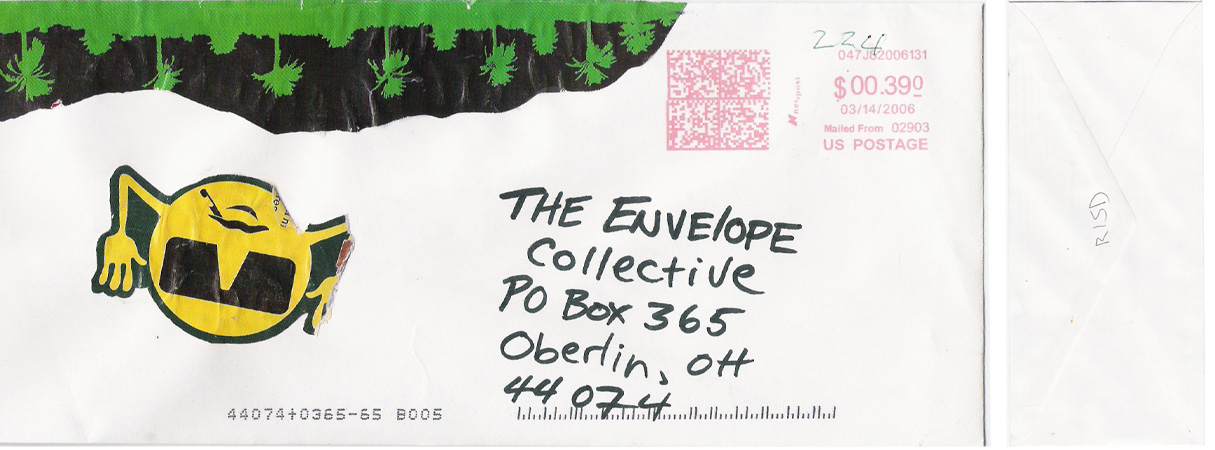 224
047J82006131
$00.390
03/14/2006
Mailed From 02903
US POSTAGE
neopost
THE ENVElOPE
Collective
PO Box 365
Oberlin, OH
44074
44074+0365-65 B005
RISD